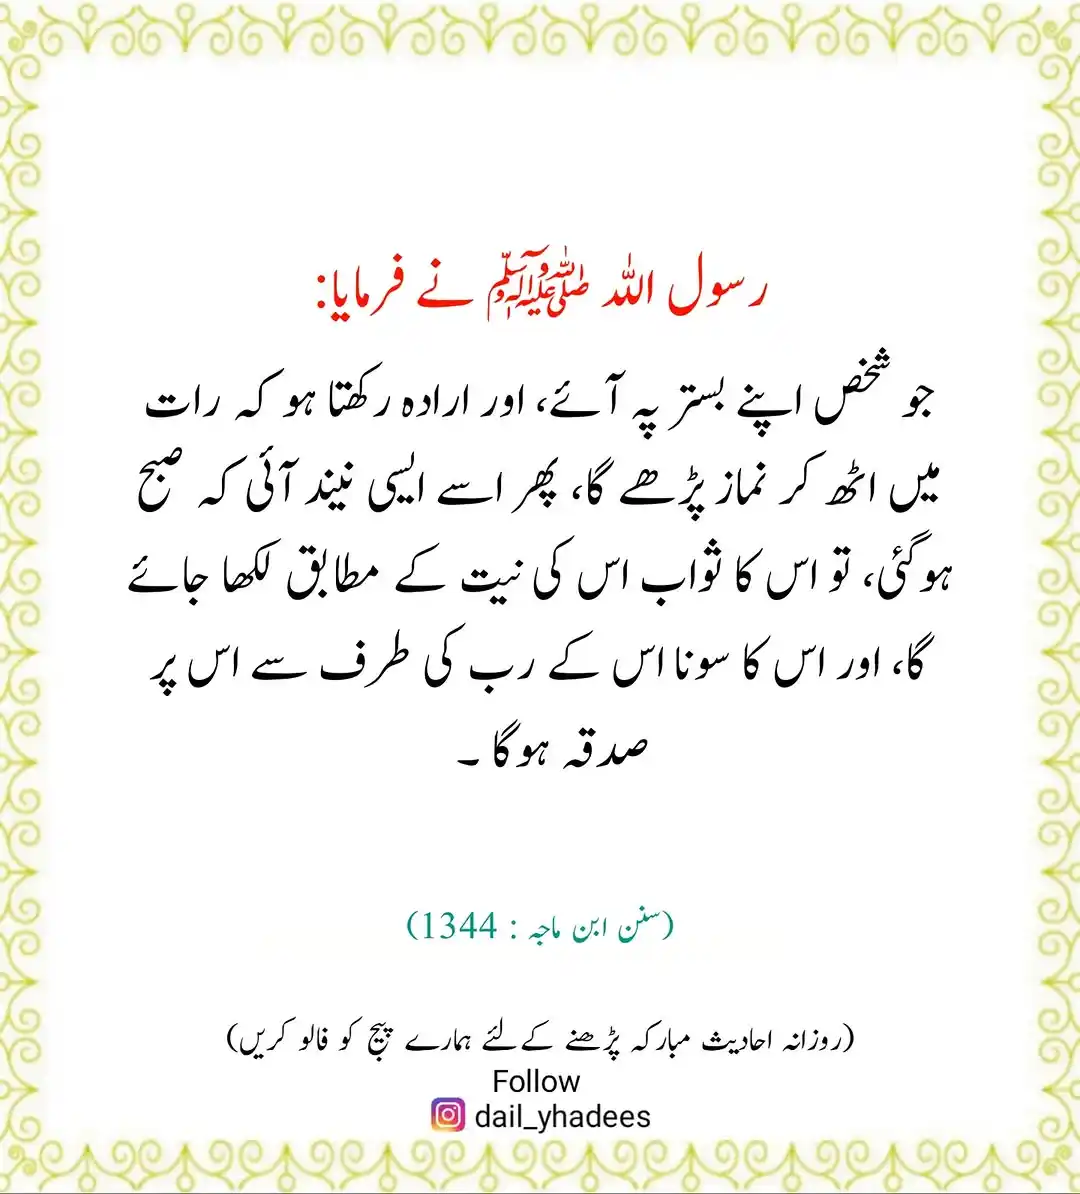 رسول اللہ ﷺ نے فرمایا:
جو شخص اپنے بستر پہ آئے، اور ارادہ رکھتا ہو کہ رات
میں اٹھ کر نماز پڑھے گا، پھر اسے ایسی نیند آئی کہ صبح
ہوگئی، تو اس کا ثواب اس کی نیت کے مطابق لکھا جائے
گا، اور اس کا سونا اس کے رب کی طرف سے اس پر
صدقہ ہوگا ۔
(سنن ابن ماجہ : 1344)
(روزانہ احادیث مبارکہ پڑھنے کے لئے ہمارے پیج کو فالو کریں)
Follow
dail_yhadees